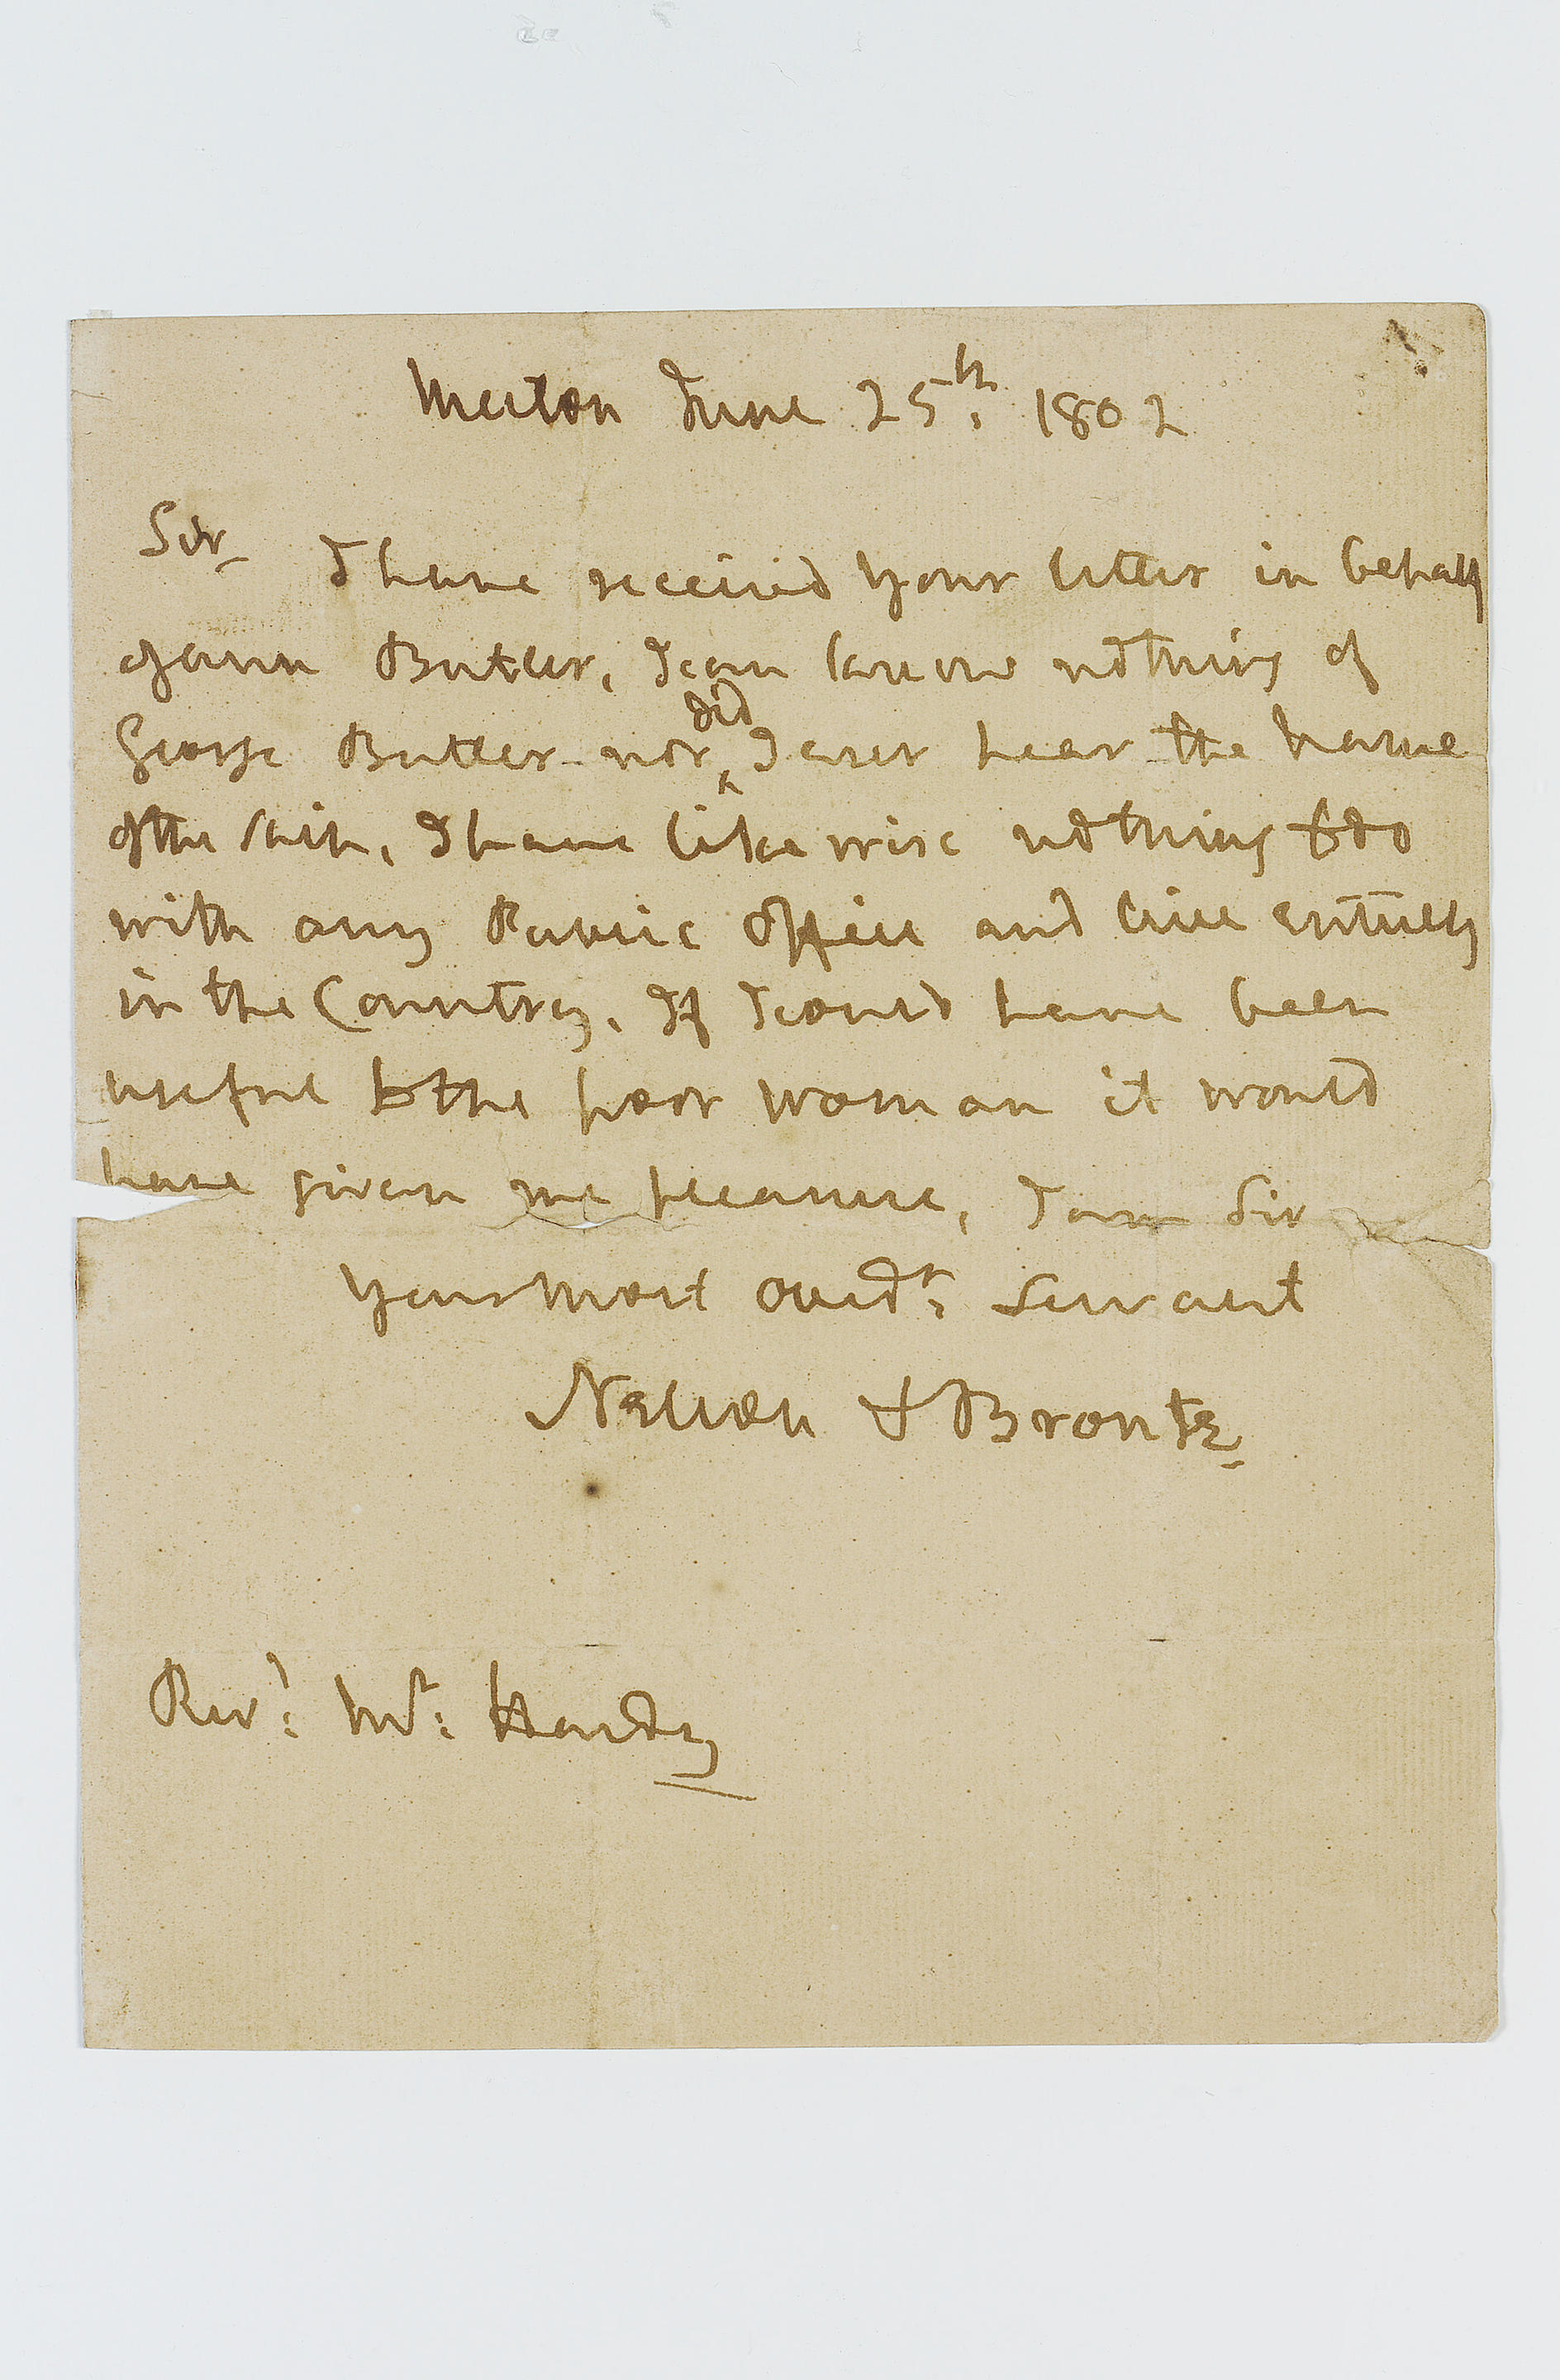 Merton June 25th: 1802
Sir
I have received your letter in behalf
of ann Butler, I can know nothing of
George Butler nor did I ever hear the name
of the ship, I have likewise nothing to do
with any Public office and live entirely
in the Country, If I could have been
useful to the poor woman it would
have given me pleasure, I am Sir
your most obedt: Servant
Nelson & Bronte
Revd: Mr: Hardy